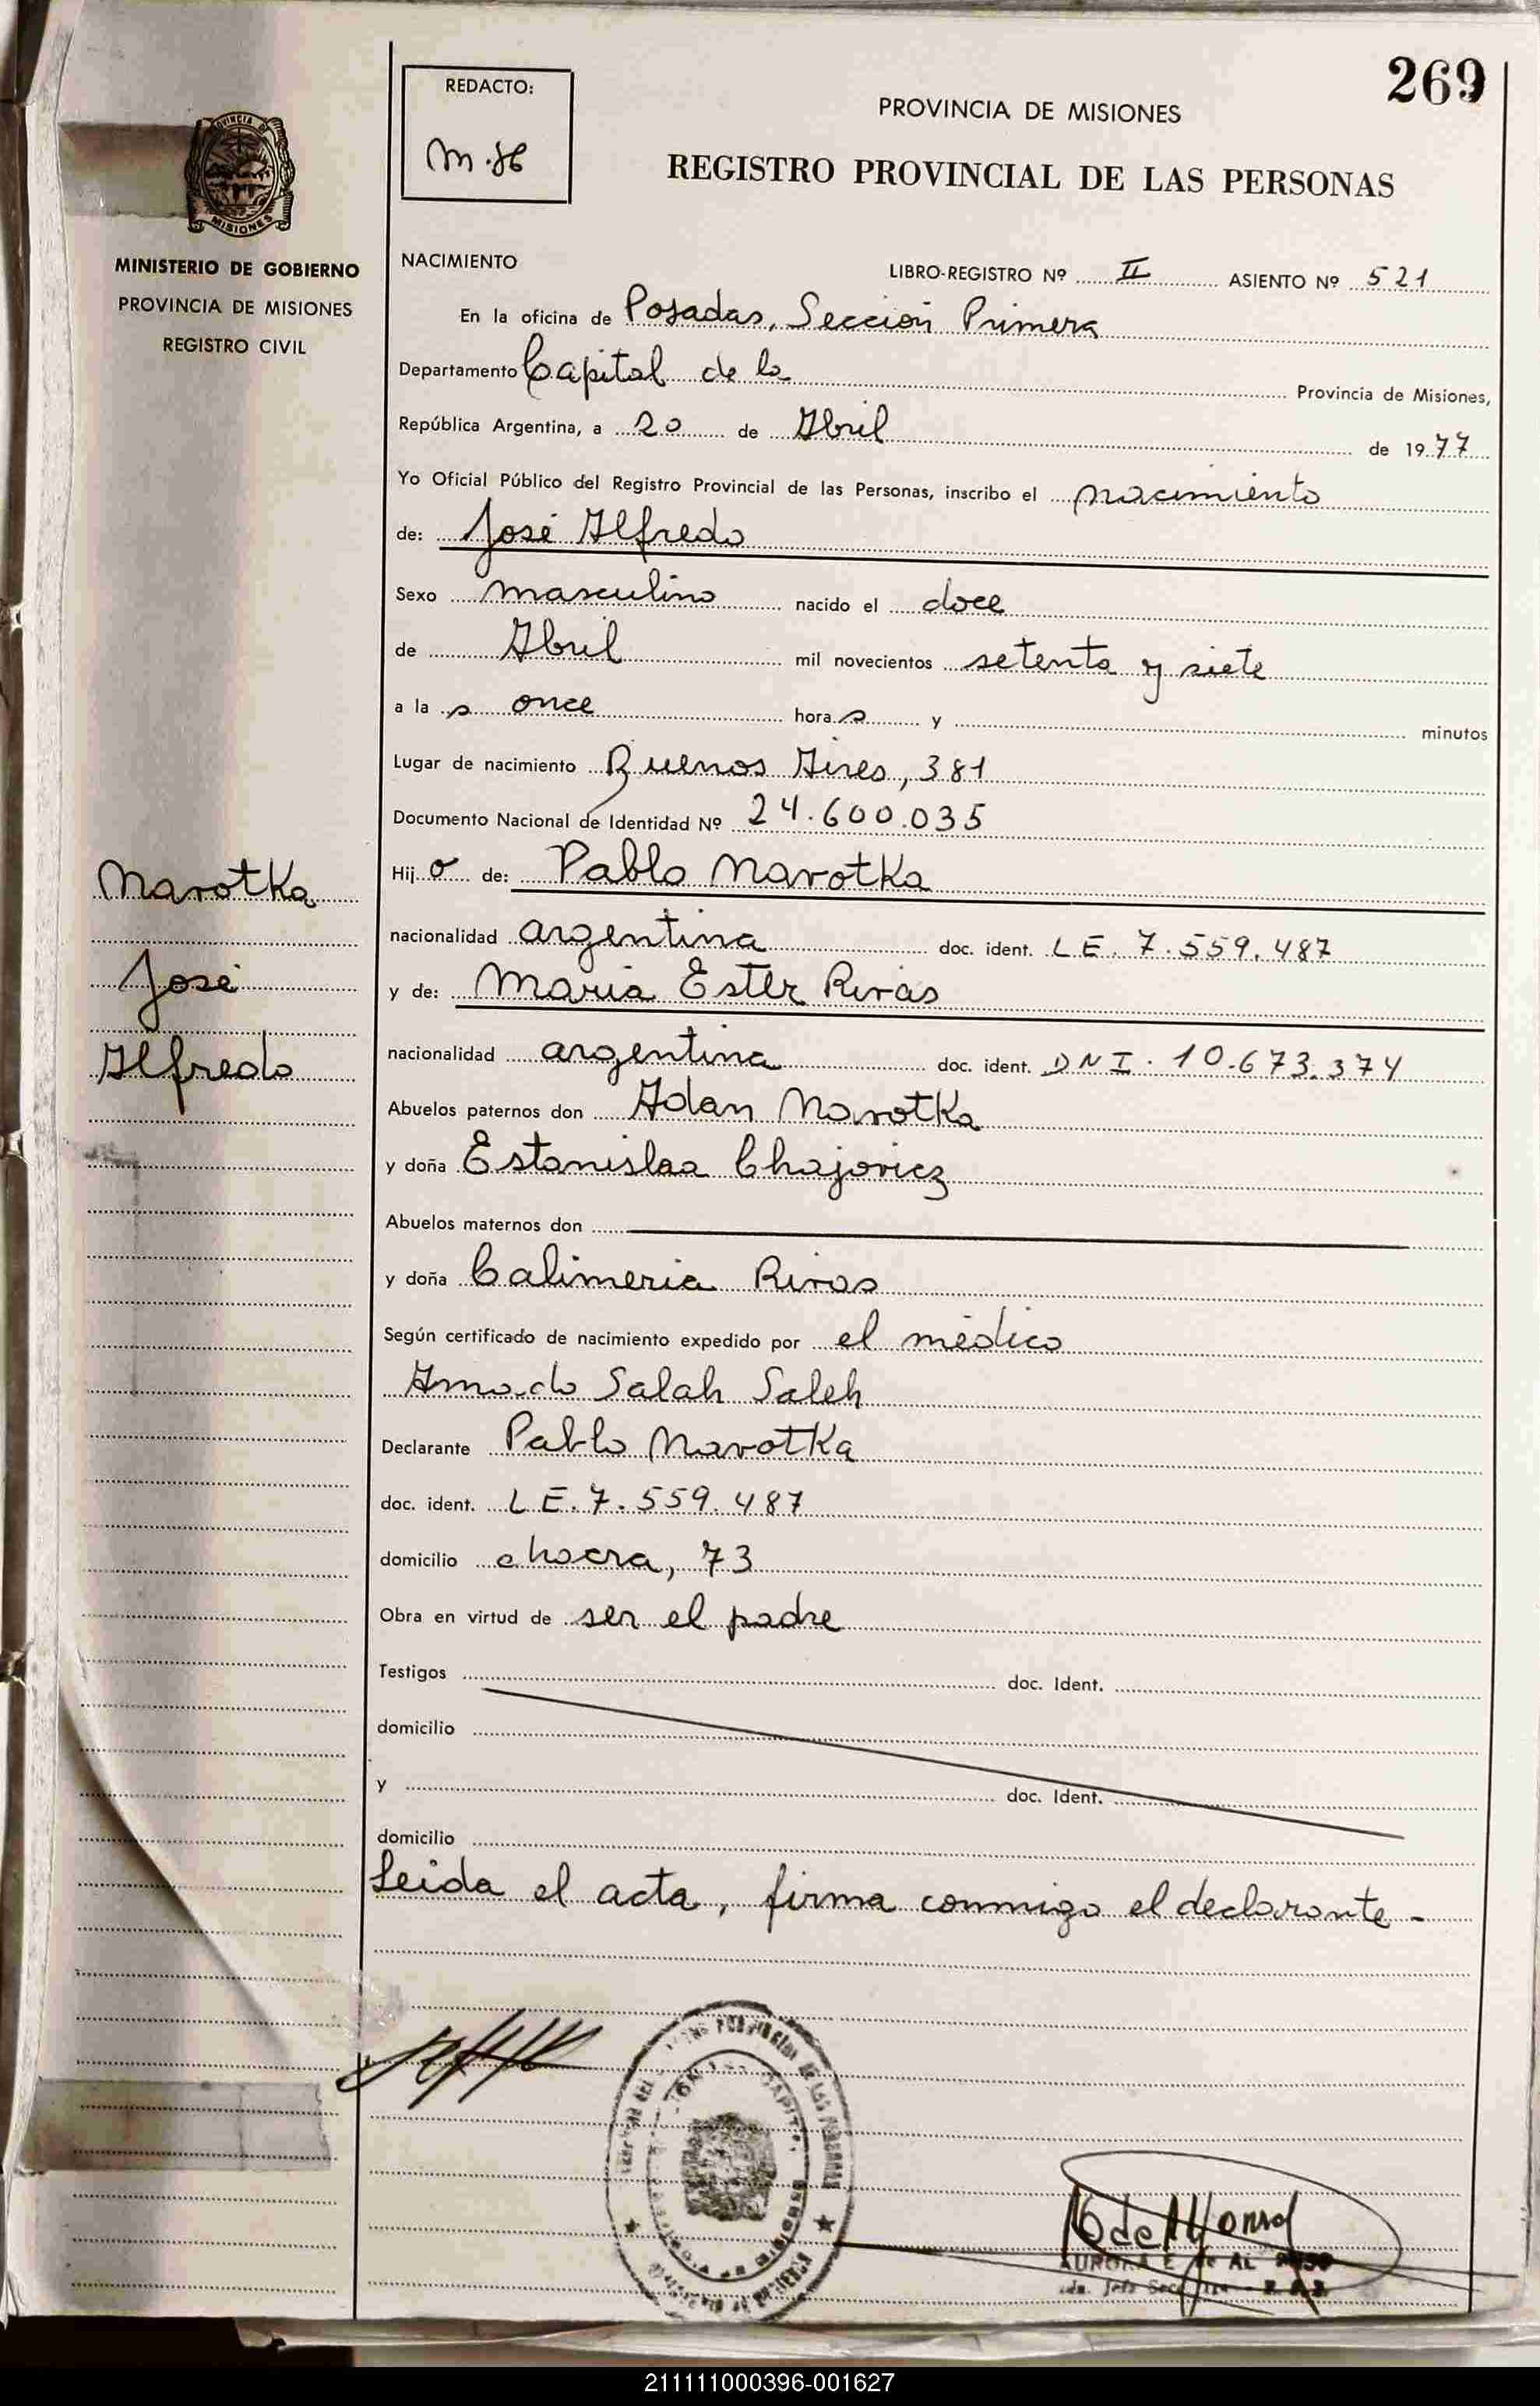 269
REDACTO:
PROVINCIA DE MISIONES
REGISTRO PROVINCIAL DE LAS PERSONAS
PROVINCIA DE
MISIONES
MINISTERIO DE GOBIERNO
PROVINCIA DE MISIONES
REGISTRO CIVIL
NACIMIENTO
LIBRO-REGISTRO Nº II ASIENTO Nº 521
En la oficina de Posadas, Sección Primera
Departamento Capital de la Provincia de Misiones,
República Argentina, a 20 de Abril de 1977
Yo Oficial Público del Registro Provincial de las Personas, inscribo el nacimiento
de: José Alfredo
Sexo masculino nacido el doce
de Abril mil novecientos setenta y siete
a la s once hora s y minutos
Lugar de nacimiento Buenos Aires, 381
Documento Nacional de Identidad Nº 24.600.035
Hij o de: Pablo Marotka
nacionalidad argentina doc. ident. L E. 7.559.487
y de: Maria Ester Rivas
nacionalidad argentina doc. ident. D N I. 10.673.374
Abuelos paternos don Adan Marotka
y doña Estanislaa Chajovicz
Abuelos maternos don
y doña Calimeria Rivas
Según certificado de nacimiento expedido por el médico
Amado Salah Saleh
Declarante Pablo Marotka
doc. ident. L E. 7.559.487
domicilio chacra, 73
Obra en virtud de ser el padre
Testigos doc. Ident.
domicilio
y doc. Ident.
domicilio
Leida el acta, firma conmigo el declarante -
Marotka
José
Alfredo
AURORA E. de AL
211111000396-001627